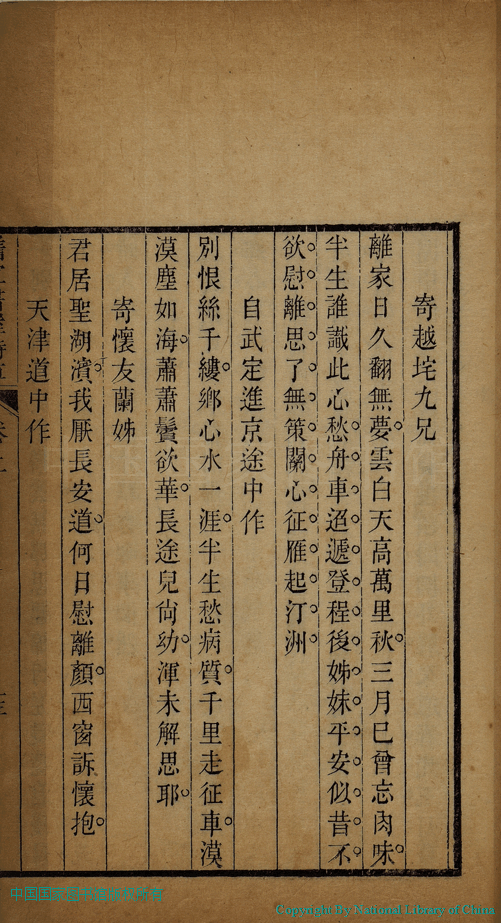 寄越垞九兄
離家日久翻無夢。雲白天高萬里秋。三月已曾忘肉味。
半生誰識此心愁。舟車迢遞登程後。姊妹平安似昔不。
欲慰離思了無策。關心征雁起汀洲。
自武定進京途中作
別恨絲千縷。鄉心水一涯。半生愁病質。千里走征車。漠
漠塵如海。蕭蕭鬢欲華。長途兒尙幼。渾未解思耶。
寄懷友蘭姊
君居聖湖濱。我厭長安道。何日慰離顏。西窗訴懷抱。
天津道中作
Copyright by National Library of China